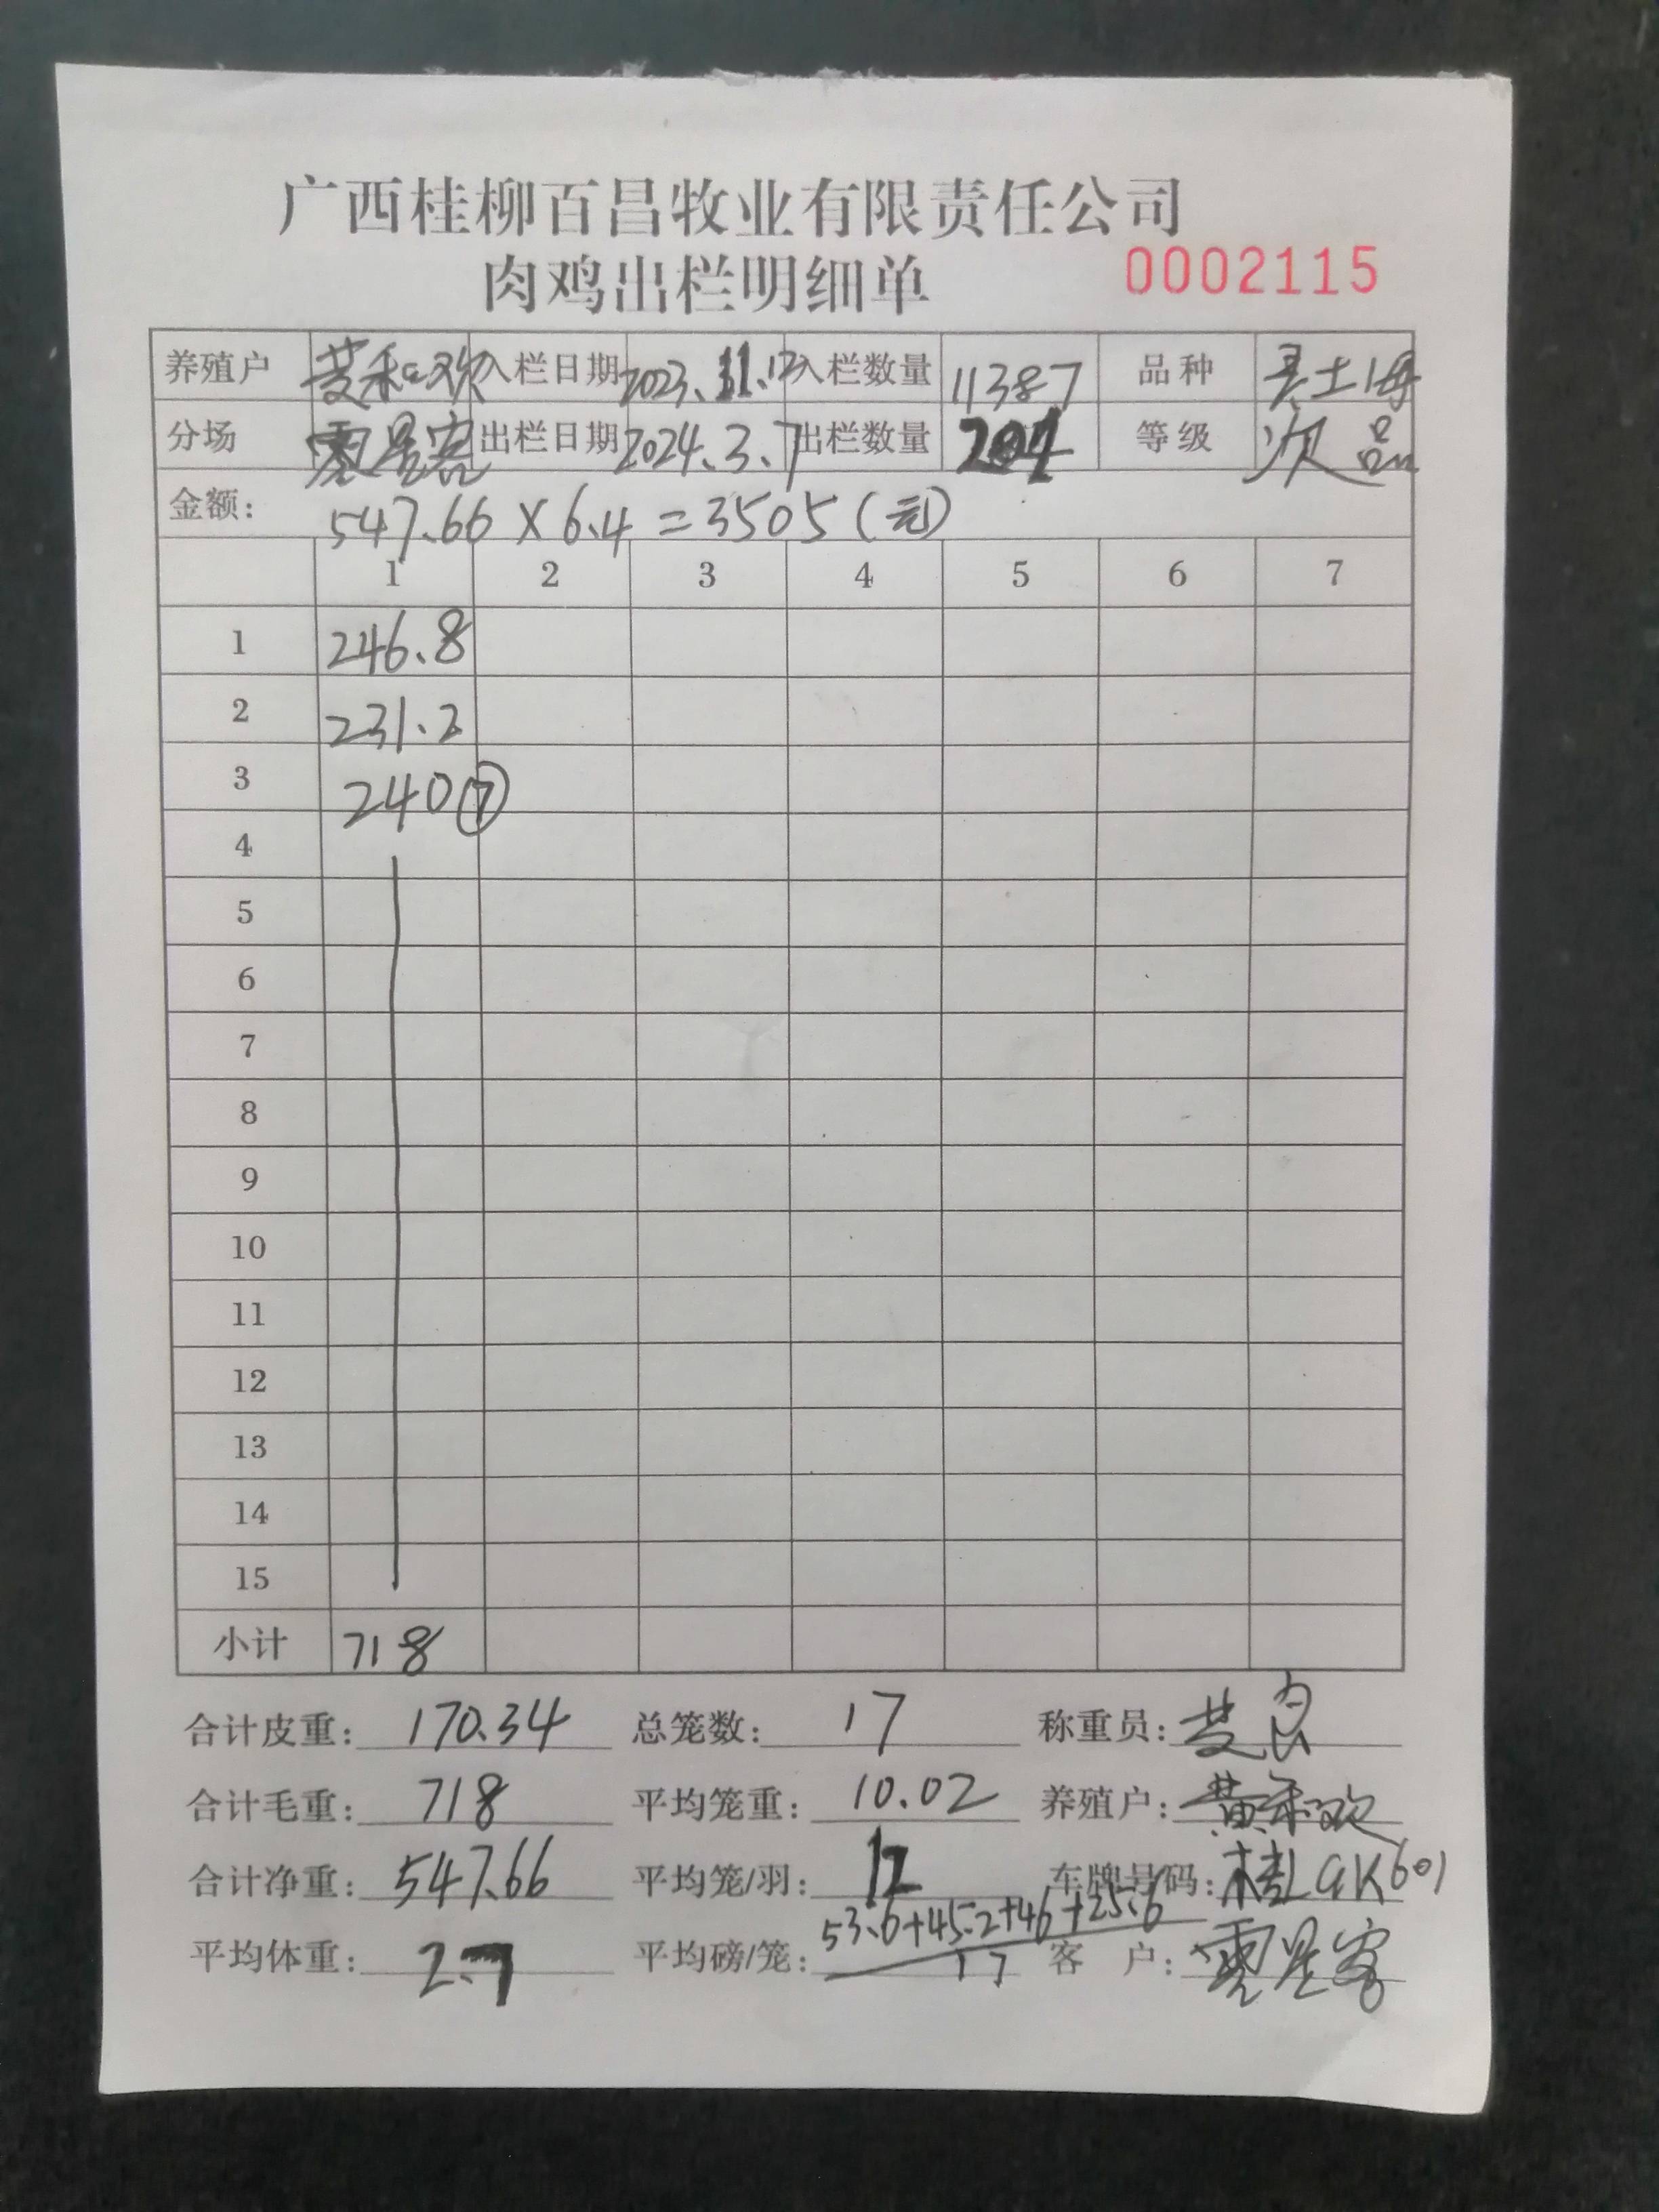 广西桂柳百昌牧业有限责任公司
肉鸡出栏明细单 0002115
养殖户 黄和欢 入栏日期 2023.11.12 入栏数量 11387 品种 土
分场 零星客 出栏日期 2024.3.7 出栏数量 204 等级 次品
金额: 547.66 × 6.4 = 3505 (元)
1 2 3 4 5 6 7
1 246.8
2 231.2
3 240 ⑦
4
5
6
7
8
9
10
11
12
13
14
15
小计 718
合计皮重: 170.34 总笼数: 17 称重员:
合计毛重: 718 平均笼重: 10.02 养殖户: 黄和欢
合计净重: 547.66 平均笼/羽: 12 车牌号码: 桂 K601
平均体重: 2.7 平均磅/笼: 53.6+45.2+46+25.6 / 17 客 户: 零星客